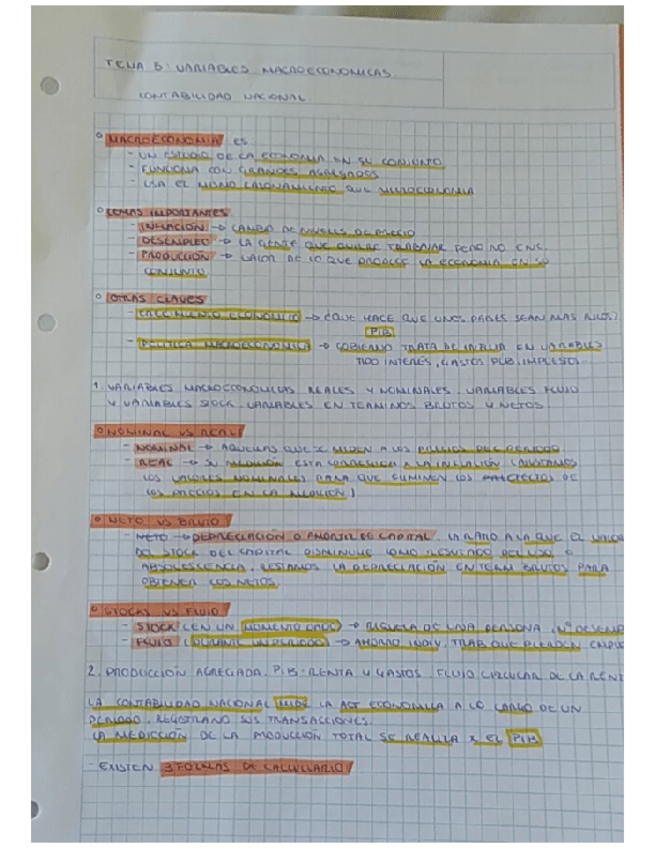 TEMA 5: VARIABLES MACROECONOMICAS.
CONTABILIDAD NACIONAL.
MACROECONOMIA ES
- UN ESTUDIO DE LA ECONOMIA EN SU CONJUNTO
- FUNCIONA CON GRANDES AGREGADOS
- USA EL MISMO RAZONAMIENTO QUE MICROECONOMIA
IMPORTANTES
- INFLACIÓN → CAMBIO DE NIVELES DE PRECIO
- DESEMPLEO → LA GENTE QUE QUIERE TRABAJAR PERO NO ENC.
- PRODUCCIÓN → VALOR DE LO QUE PRODUCE LA ECONOMIA EN SU
CONJUNTO
OTRAS CLAVES
- CRECIMIENTO ECONOMICO → ¿QUE HACE QUE UNOS PAISES SEAN MAS RICOS?
PIB
- POLITICA MACROECONOMICA → GOBIERNO TRATA DE INFLUIR EN VARIABLES
TIPO INTERES, GASTOS PUB, IMPUESTOS
1. VARIABLES MACROECONOMICAS REALES Y NOMINALES. VARIABLES FLUJO
Y VARIABLES STOCK. VARIABLES EN TERMINOS BRUTOS Y NETOS
NOMINAL VS REAL
- NOMINAL → AQUELLAS QUE SE MIDEN A LOS PRECIOS DEL PERIODO
- REAL → SU MEDICIÓN ESTA CORREGIDA A LA INFLACIÓN (AJUSTAMOS
LOS VALORES NOMINALES PARA QUE ELIMINEN LOS EFECTOS DE
LOS PRECIOS EN LA MEDICIÓN)
NETO VS BRUTO
- NETO → DEPRECIACIÓN O AMORTIZ DE CAPITAL. LA RATIO A LA QUE EL VALOR
DEL STOCK DEL CAPITAL DISMINUYE COMO RESULTADO DEL USO O
ABSOLESCENCIA. RESTAMOS LA DEPRECIACIÓN EN TERM BRUTOS PARA
OBTENER LOS NETOS.
STOCKS VS FLUJO
- STOCK (EN UN MOMENTO DADO) → RIQUEZA DE UNA PERSONA, Nº DESEMP
- FLUJO (DURANTE UN PERIODO) → AHORRO INDIV, TRAB QUE PIERDEN EMPLE
2. PRODUCCIÓN AGREGADA. PIB: RENTA Y GASTOS. FLUJO CIRCULAR DE LA RENT
LA CONTABILIDAD NACIONAL MIDE LA ACT ECONOMICA A LO LARGO DE UN
PERIODO, REGISTRANO SUS TRANSACCIONES.
LA MEDICCIÓN DE LA PRODUCCIÓN TOTAL SE REALIZA X EL PIB
- EXISTEN 3 FORMAS DE CALCULARLO